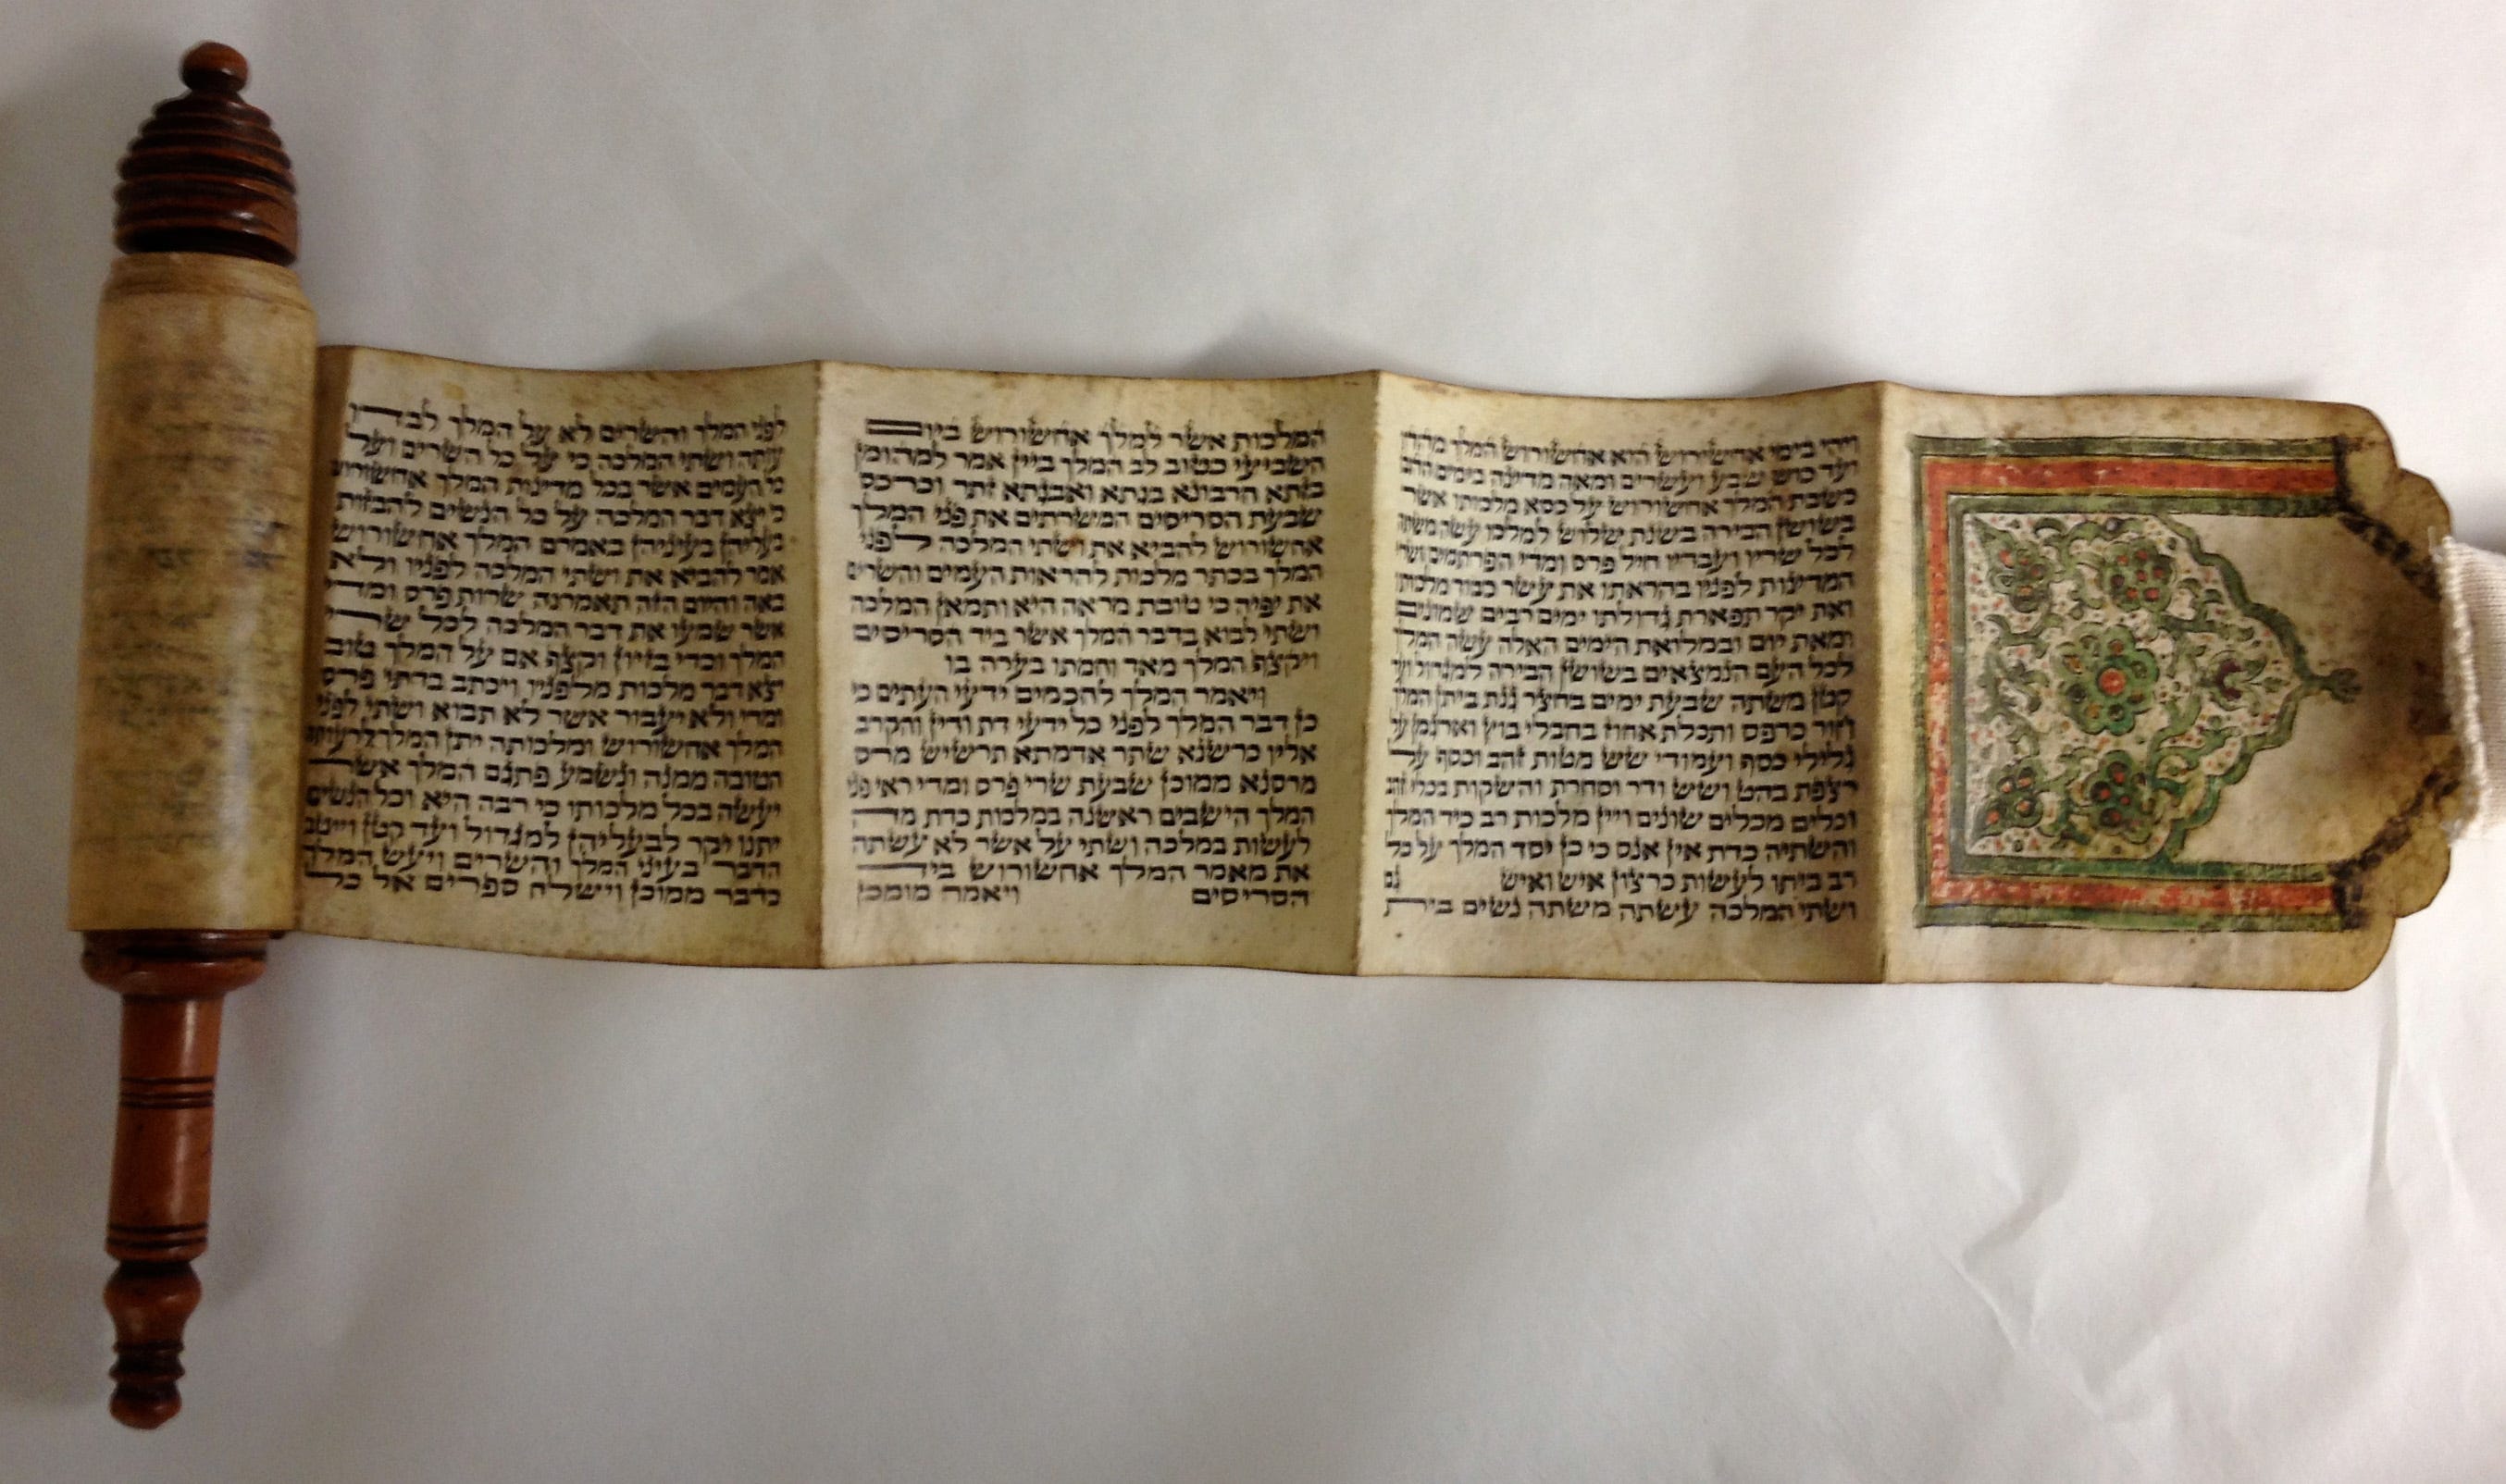 ויהי בימי אחשורוש הוא אחשורוש המלך מהדו
ועד כוש שבע ועשרים ומאה מדינה בימים ההם
כשבת המלך אחשורוש על כסא מלכותו אשר
בשושן הבירה בשנת שלוש למלכו עשה משתה
לכל שריו ועבדיו חיל פרס ומדי הפרתמים ושרי
המדינות לפניו בהראתו את עשר כבוד מלכותו
ואת יקר תפארת גדולתו ימים רבים שמונים
ומאת יום ובמלואת הימים האלה עשה המלך
לכל העם הנמצאים בשושן הבירה למגדול ועד
קטן משתה שבעת ימים בחצר גנת ביתן המלך
חור כרפס ותכלת אחוז בחבלי בוץ וארגמן על
גלילי כסף ועמודי שש מטות זהב וכסף על
רצפת בהט ושש ודר וסחרת והשקות בכלי זהב
וכלים מכלים שונים ויין מלכות רב כיד המלך
והשתיה כדת אין אנס כי כן יסד המלך על כל
רב ביתו לעשות כרצון איש ואיש גם
ושתי המלכה עשתה משתה נשים בית
המלכות אשר למלך אחשורוש ביום
השביעי כטוב לב המלך ביין אמר למהומן
בזתא חרבונא בגתא ואבגתא זתר וכרכס
שבעת הסריסים המשרתים את פני המלך
אחשורוש להביא את ושתי המלכה לפני
המלך בכתר מלכות להראות העמים והשרים
את יפיה כי טובת מראה היא ותמאן המלכה
ושתי לבוא בדבר המלך אשר ביד הסריסים
ויקצף המלך מאד וחמתו בערה בו
ויאמר המלך לחכמים ידעי העתים כי
כן דבר המלך לפני כל ידעי דת ודין והקרב
אליו כרשנא שתר אדמתא תרשיש מרס
מרסנא ממוכן שבעת שרי פרס ומדי ראי פני
המלך הישבים ראשנה במלכות כדת מה
לעשות במלכה ושתי על אשר לא עשתה
את מאמר המלך אחשורוש ביד
הסריסים ויאמר מומכן
לפני המלך והשרים לא על המלך לבדו
עותה ושתי המלכה כי על כל השרים ועל
העמים אשר בכל מדינות המלך אחשורוש
כי יצא דבר המלכה על כל הנשים להבזות
בעליהן בעיניהן באמרם המלך אחשורוש
אמר להביא את ושתי המלכה לפניו ולא
באה והיום הזה תאמרנה שרות פרס ומדי
אשר שמעו את דבר המלכה לכל שרי
המלך וכדי בזיון וקצף אם על המלך טוב
יצא דבר מלכות מלפניו ויכתב בדתי פרס
ומדי ולא יעבור אשר לא תבוא ושתי לפני
המלך אחשורוש ומלכותה יתן המלך לרעותה
הטובה ממנה ונשמע פתגם המלך אשר
יעשה בכל מלכותו כי רבה היא וכל הנשים
יתנו יקר לבעליהן למגדול ועד קטן וייטב
הדבר בעיני המלך והשרים ויעש המלך
כדבר ממוכן וישלח ספרים אל כל